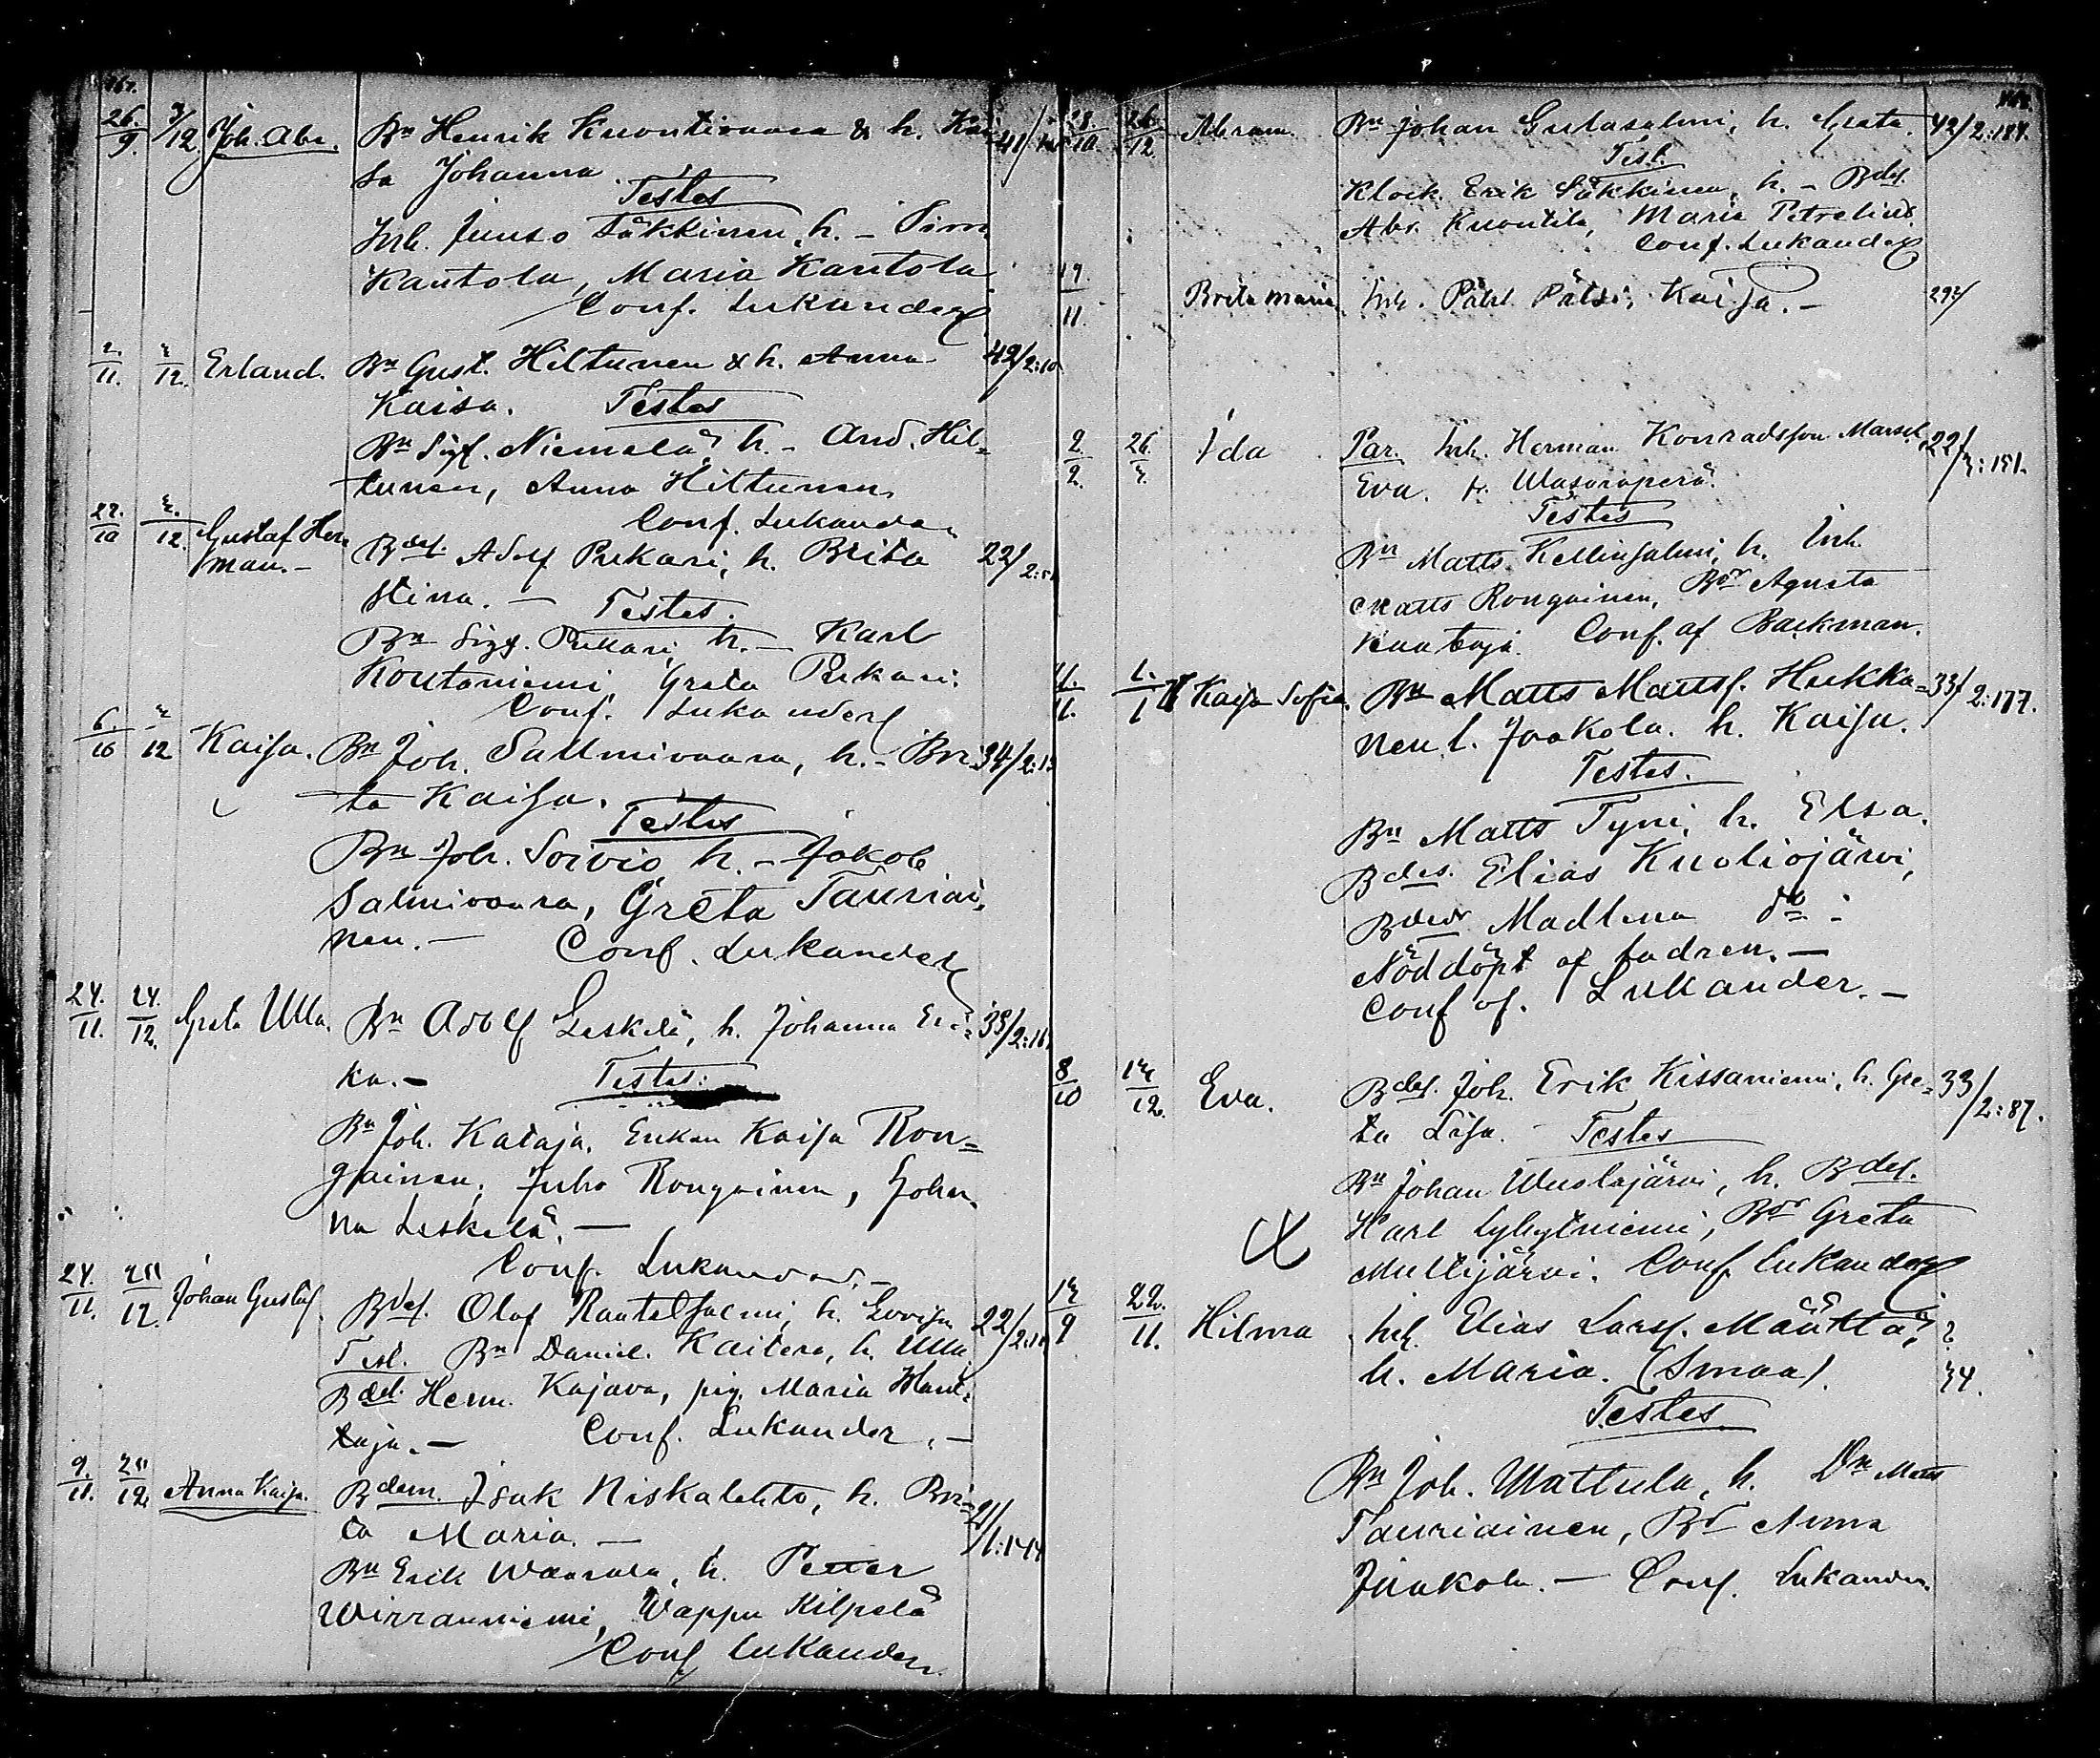 167.
26./9. 3/12 Joh. Abr. Bn Henrik Kuontivaara & h. Kai- 41/
sa Johanna.
Testes
Inh. Juuso Säkkinen, h. – Sim.
Kantola, Maria Kantola
Conf. Lukander
2./11. 2/12. Erland. Bn Gust. Hiltunen & h. Anna 42/2:10
Kaisa. Testes
Bn Sigf. Niemelä, h. – And. Hil-
tunen, Anna Hiltunen
Conf. Lukander
27./10 2./12. Gustaf Her-
man. – Bdes. Adolf Pukari, h. Brita 22/2:
Stina. – Testes.
Bn Sigf. Pukari h. – Karl
Kontaniemi, Greta Pukari.
Conf. Lukander
6./10 2/12 Kaisa. Bn Joh. Salmivaara, h. – Bri- 34/2:1
ta Kaisa.
Testes
Bn Joh. Soivio, h. – Jakob
Salmivaara, Greta Tauriai-
nen. – Conf. Lukander
24./11. 24./12. Greta Ulla. Bn Adolf Leskelä, h. Johanna Eri- 38/2:16
ka. – Testes.
Bn Joh. Kataja, Enkan Kaisa Ron-
gainen, Juho Rongainen, Johan-
na Leskelä. –
Conf. Lukander. –
24./11. 25/12. Johan Gustaf. Bdes. Olof Rantalsalmi, h. Lovisa 22/2:10
Test. Bn Daniel Kaitera, h. Ulla
Bdes. Herm. Kajava, pig. Maria Mant-
taja. – Conf. Lukander. –
9./11. 25/12. Anna Kaisa. Bdem. Isak Niskalehto, h. Bri- 21/1:144
ta Maria. –
Bn Erik Waarala, h. Petter
Wirranniemi, Wappu Kilpelä
Conf. Lukander
168.
28./10 26./12 Abram. Bn Johan Gutasalmi, h. Greta. 42/2:184.
Test.
Klock. Erik Säkkinen, h. – Bdes.
Abr. Kuontila, Maria Petrelius.
Conf. Lukander
17/11. Brita Maria Inh. Påhl Pätsi, Kaisa. – 29?/
2./2. 26./2. Ida Par. Inh. Herman Konradsson 22/2:151.
Eva. fr. Wasaraperä.
Testes
Bn Matts Kellinsalmi, h. Inh.
Matts Rongainen, Bdr Agneta
Kaataja. Conf. af Backman.
11./11. 1./1 Kaisa Sofia. Bn Matts Mattsf. Hukka- 33/2:177.
nen l. Jaakola. h. Kaisa.
Testes.
Bn Matts Tyni, h. Elsa.
Bdes. Elias Kuoliojärvi,
Bdedr Madlena do –
Nöddöpt af fadren. –
Conf af. Lukander. –
8/10 12/12. Eva. Bdes. Joh. Erik Kissaniemi, h. Gre- 33/2:87.
ta Lisa. Testes
Bn Johan Uuslajärvi, h. Bdes.
Karl Lyhytniemi, Bdr Greta
Multijärvi. Conf. Lukander
12/9 22./11. Hilma Inh. Elias Larsf. Määttä, ?
h. Maria. (Smaa). 34.
Testes.
Bn Joh. Mattula, h. Dn Matts
Tauriainen, Bd Anna
Jaakola. – Conf. Lukander.